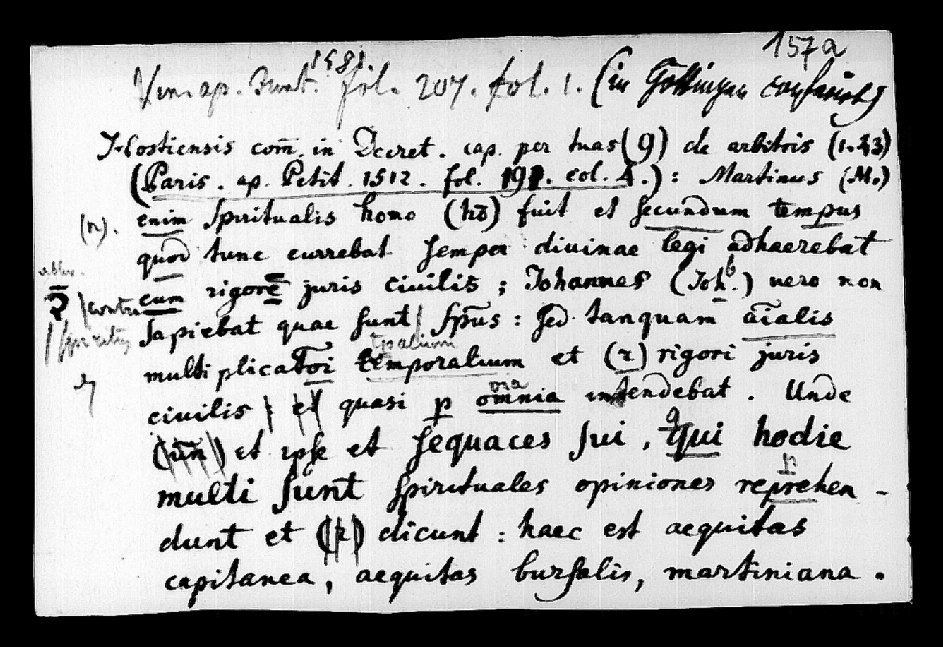 157a
1581.
Ven. ap. Junt. fol. 207. fol. 1. (in Göttingen
Hostiensis com̄. in Decret. cap. per tuas (9) de arbitris (1.43)
(Paris. ap. Petit. 1512. fol. 191. col. 4.): Martinus (M.)
(n). enim spiritualis homo (hō) fuit et secundum tempus
quod tunc currebat semper divinae legi adhaerebat
contra eum rigorē juris civilis; Johannes (Joh.) vero non
sapiebat quae sunt spūs: sed tanquam āīalis
spiritus
tpalium
multiplicatoi temporalium et (z) rigori juris
civilis et quasi p omnia intendebat. Unde
(un) et ipse et sequaces sui, qui hodie
multi sunt spirituales opiniones reprehen-
dunt et (z) dicunt: haec est aequitas
capitanea, aequitas bursalis, martiniana.